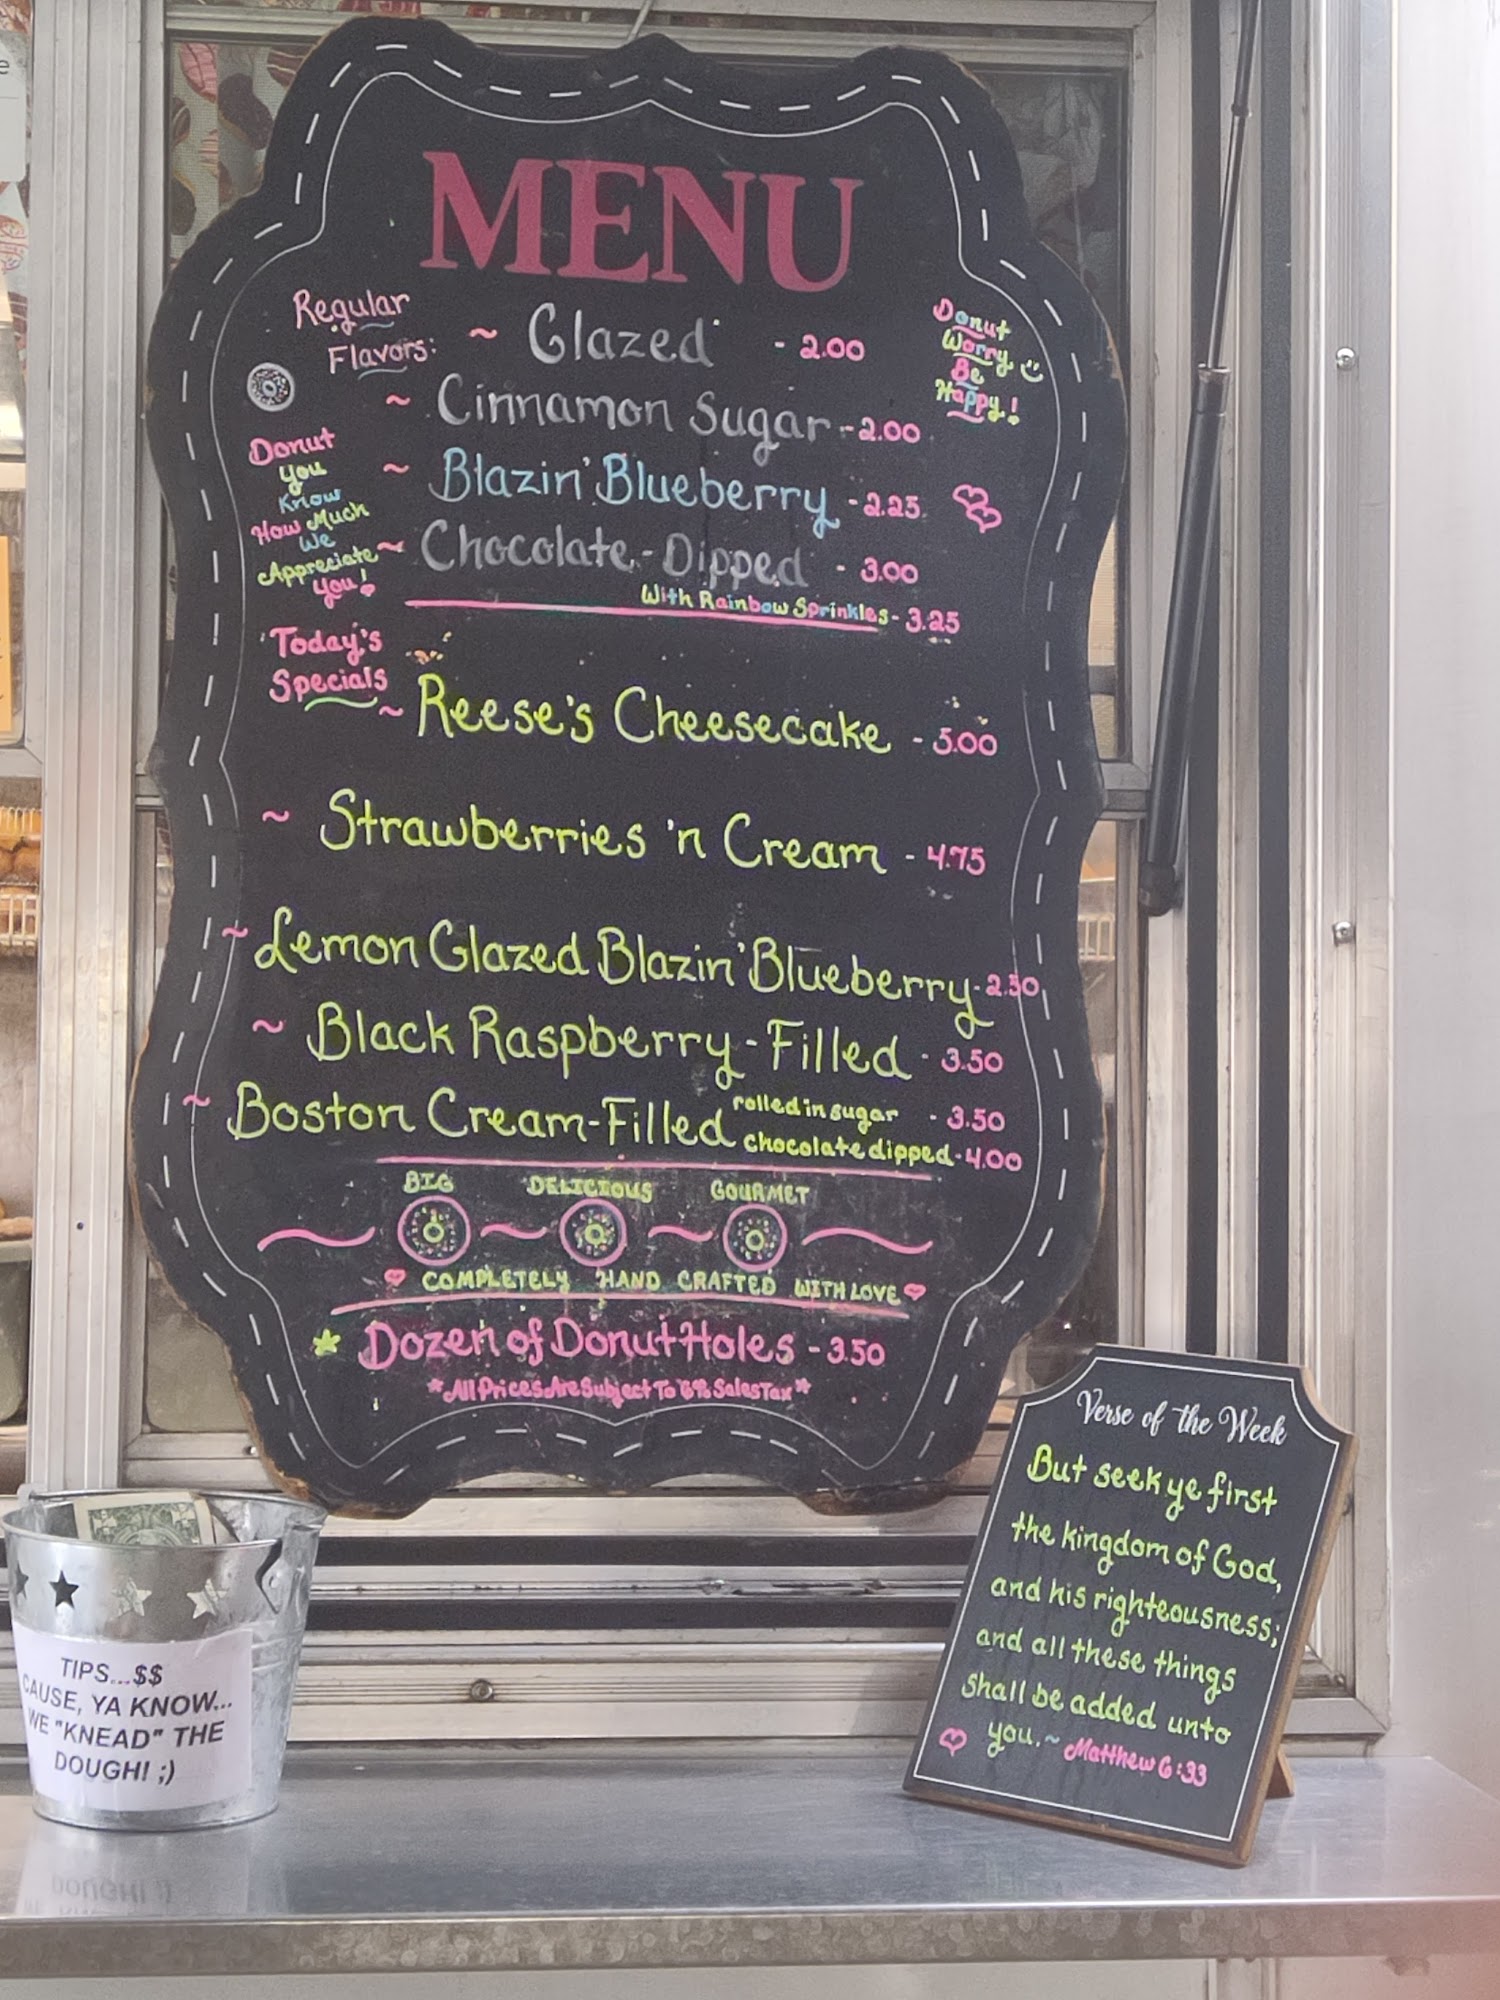 MENU
Regular
Flavors:
~ Glazed - 2.00
~ Cinnamon Sugar - 2.00
~ Blazin' Blueberry - 2.25
~ Chocolate-Dipped - 3.00
With Rainbow Sprinkles - 3.25
Donut
Worry
Be
Happy!
Donut
You
Know
How Much
We
Appreciate
You!
Today's
Specials
~ Reese's Cheesecake - 5.00
~ Strawberries 'n Cream - 4.75
~ Lemon Glazed Blazin' Blueberry - 2.50
~ Black Raspberry-Filled - 3.50
~ Boston Cream-Filled rolled in sugar - 3.50
chocolate dipped - 4.00
BIG DELICIOUS GOURMET
COMPLETELY HAND CRAFTED WITH LOVE
Dozen of Donut Holes - 3.50
*All Prices Are Subject To 6% Sales Tax*
Verse of the Week
But seek ye first
the kingdom of God,
and his righteousness;
and all these things
shall be added unto
you. ~ Matthew 6:33
TIPS...$$
CAUSE, YA KNOW...
WE "KNEAD" THE
DOUGH! ;)